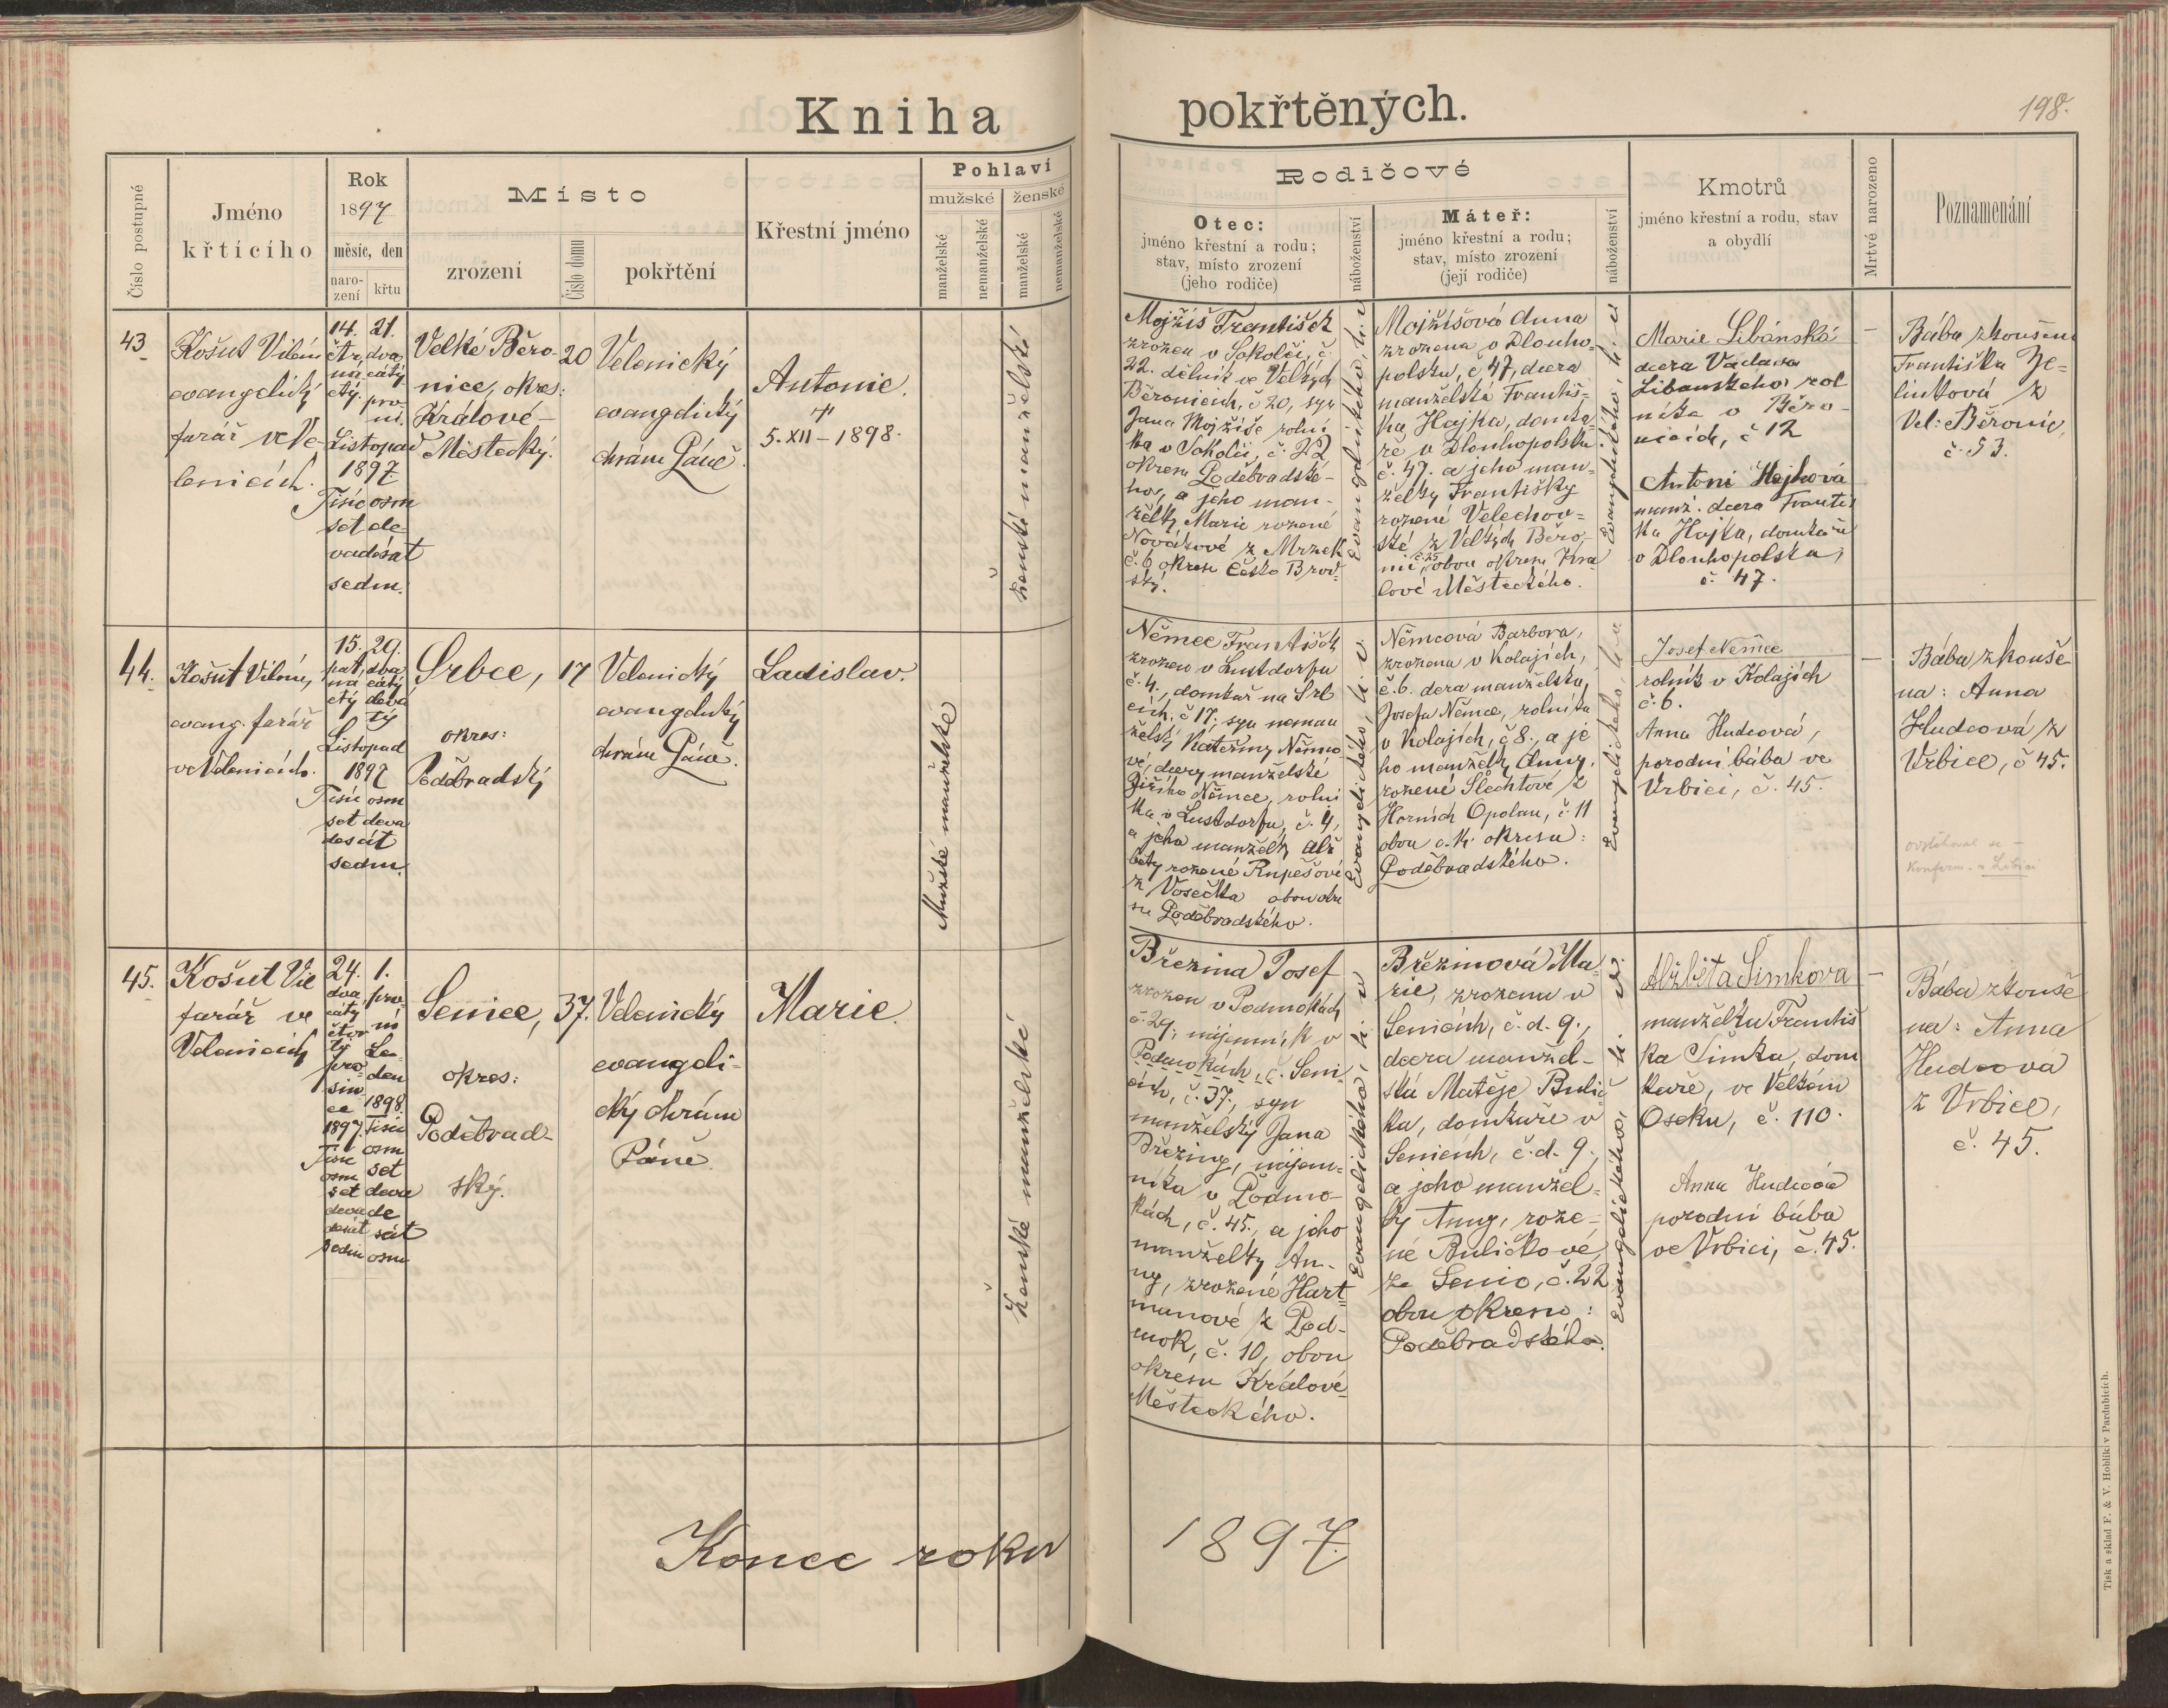 Kniha pokřtěných.
198.
Číslo postupné
Jméno
křtícího
Rok
1897
měsíc, den
naro-
zení
křtu
Místo
zrození
Číslo domu
pokřtění
Křestní jméno
Pohlaví
mužské
ženské
manželské
nemanželské
manželské
nemanželské
Rodičové
Otec:
jméno křestní a rodu;
stav, místo zrození
(jeho rodiče)
náboženství
Máteř:
jméno křestní a rodu;
stav, místo zrození
(její rodiče)
náboženství
Kmotrů
jméno křestní a rodu, stav
a obydlí
Mrtvě narozeno
Poznamenání
43
Košut Vilém
evangelický
farář ve Ve-
lenicích.
14.
čtr
ná
ctý.
21.
dva
cátý
prv
ní.
Listopad
1897
Tisíc osm
set de
vadesát
sedm.
Velké Běro-
nice, okres:
Králové-
Městecký.
20
Velenický
evangelický
chrám Páně.
Antonie.
†
5. XII - 1898.
Ženské manželské
Mojžíš František
zrozen v Sokolči, č.
22. dělník ve Velkých
Běronicích, č 20, syn
Jana Mojžíše rolní
ka v Sokolči, č. 22
okresu Poděbradské-
ho, a jeho man-
želky Marie rozené
Novákové z Mrzek
č. 6 okresu Česko Brod-
ský.
Evangelického, h. v.
Mojžíšová Anna
zrozena v Dlouho-
polsku, č 47, dcera
manželská Františ-
ka Hajka, domka
ře v Dlouhopolsku
č. 47. a jeho man-
želky Františky
rozené Velechov-
ské z Velkých Běro-
nic, č 25 obou okresu Krá-
lové Městeckého.
Evangelického, h. v.
Marie Libánská
dcera Václava
Libanského, rol
níka v Běro-
nicích, č 12
Antonie Hajková
manž. dcera Františ
ka Hajka, domkaře
v Dlouhopolsku,
č. 47.
–
Bába zkoušená
Františka Je-
línková z
Vel: Běronic,
č. 53.
44.
Košut Vilém,
evang. farář
ve Velenicích.
15.
pat
ná
ctý
29.
dva
cátý
devá
tý
Listopad
1897
Tisíc osm
set deva
desát
sedm.
Srbce,
okres:
Poděbradský
17
Velenický
evangelický
chrám Páně.
Ladislav.
Mužské manželské
Němec František
zrozen v Lustdorfu
č. 4., domkař na Srb
cích, č 17. syn neman
želský Kateřiny Němco
vé, dcery manželské
Jiřího Němce, rolní
ka v Lustdorfu, č. 4,
a jeho manželky Alž
běty rozené Rupešové
z Vosečka obou okre
su Poděbradského.
Evangelického, h. v.
Němcová Barbora,
zrozena v Kolajích,
č. 6. dcera manželská,
Josefa Němce, rolníka
v Kolajích, č 8., a je
ho manželky Anny,
rozené Šlechtové z
Horních Opolan, č. 11
obou c. k. okresu:
Poděbradského.
Evangelického, h. v.
Josef Němec
rolník v Kolajích
č. 6.
Anna Hudcová,
porodní bába ve
Vrbici, č. 45.
–
Bába zkouše
na: Anna
Hudcová z
Vrbice, č 45.
odstěhoval se –
Konfirm. v Libici
45.
Košut Vil
farář ve
Velenicích
24.
dva
cátý
čtvr
tý
pro-
sin
ce
1897.
Tisíc
osm
set
deva
desát
sedm
1.
prv-
ní
Le-
den
1898.
Tisíc
osm
set
deva
de
sát
osm
Senice,
okres:
Poděbrad-
ský.
37.
Velenický
evangeli-
cký chrám
Páně.
Marie.
Ženské manželské
Březina Josef
zrozen v Podmokách
č. 29, nájemník v
Podmokách, č. Seni-
cích, č. 37, syn
manželský Jana
Březiny, nájem-
níka v Podmo-
kách, č. 45., a jeho
manželky An-
ny, zrozené Hart-
manové z Pod-
mok, č. 10, obou
okresu Králové-
Městeckého.
Evangelického, h. v.
Březinová Ma-
rie, zrozena v
Senicích, č. d. 9.,
dcera manžel-
ská Matěje Bulíč
ka, domkaře v
Senicích, č. d. 9.,
a jeho manžel-
ky Anny, roze-
né Bulíčkové,
ze Senic, č. 22
obou okresu:
Poděbradského.
Evangelického, h. v.
Alžběta Šimkova
manželka Františ
ka Šimka, dom
kaře, ve Velkém
Oseku, č. 110.
Anna Hudcová
porodní bába
ve Vrbici, č. 45.
–
Bába zkouše
na: Anna
Hudcova
z Vrbice,
č. 45.
Konec roku 1897.
Tisk a sklad F. & V. Hoblík v Pardubicích.